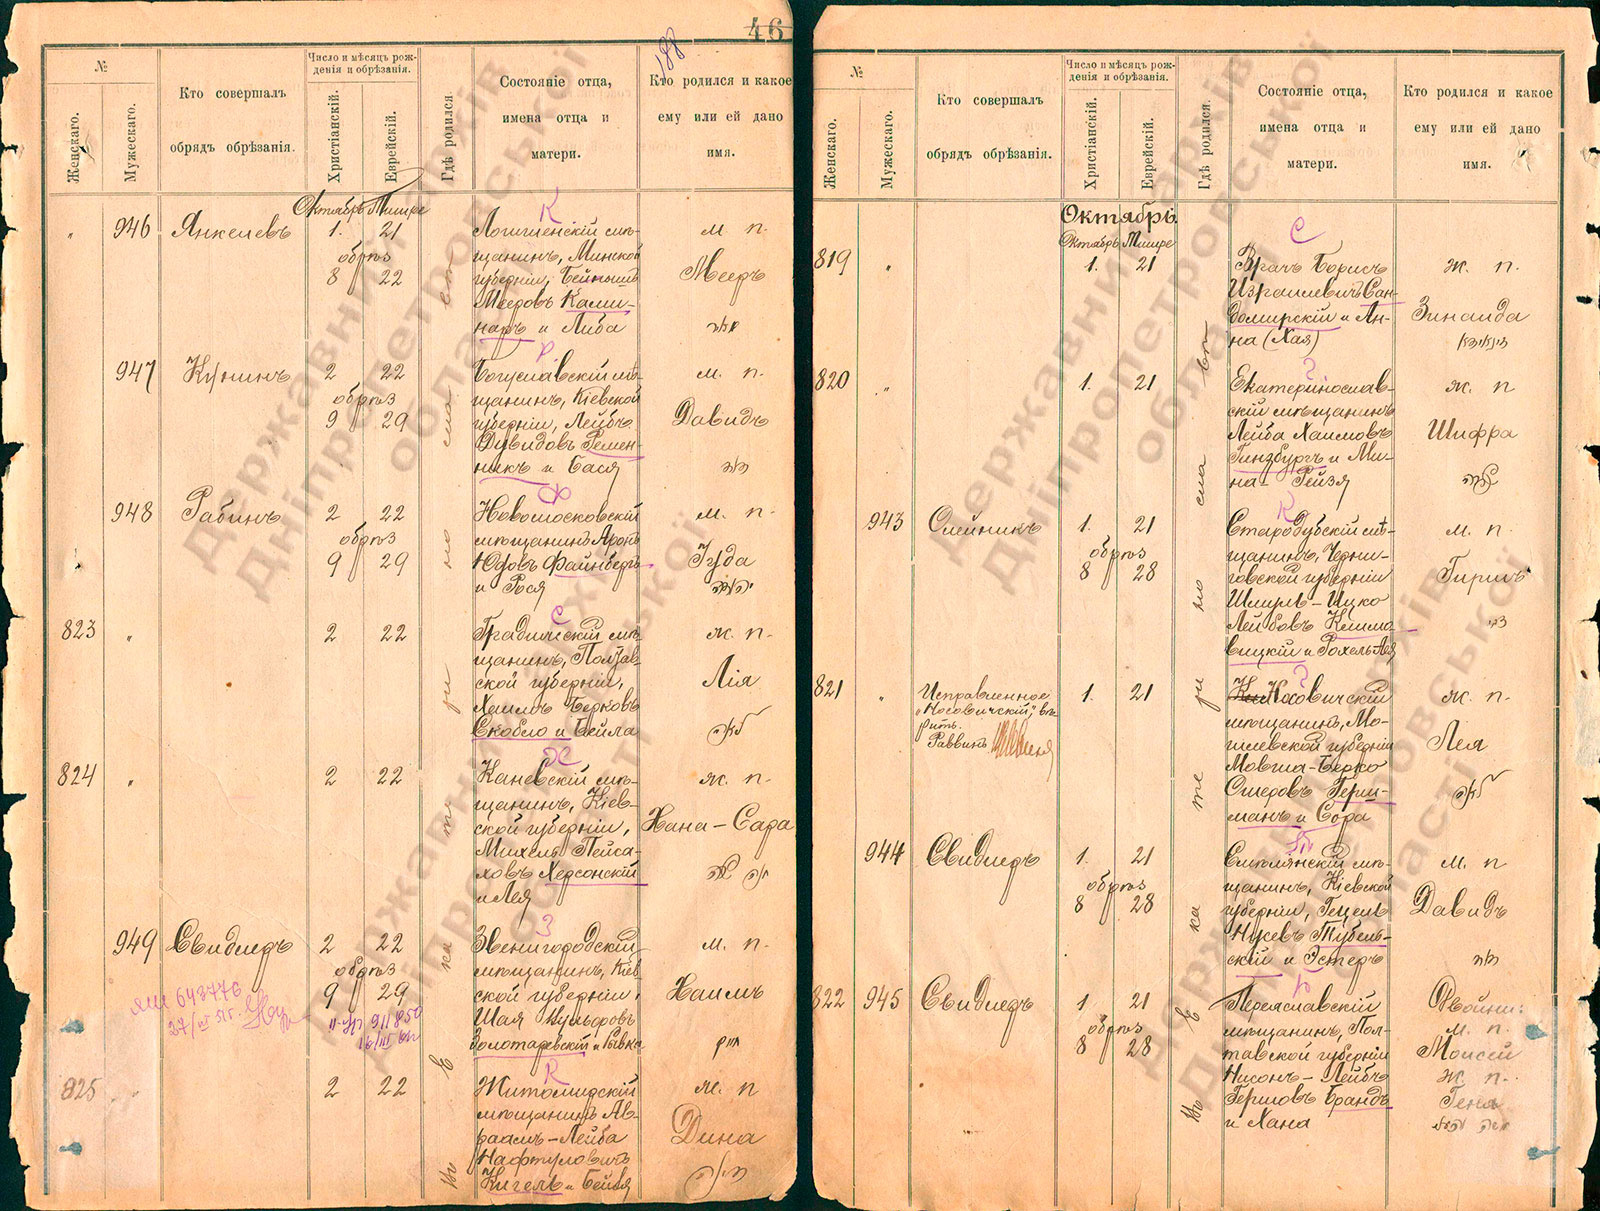 46
188
№
Женскаго.
Мужескаго.
Кто совершалъ
обрядъ обрѣзанія.
Число и мѣсяцъ рож-
денія и обрѣзанія.
Христіанскій.
Еврейскій.
Гдѣ родился.
Состояніе отца,
имена отца и
матери.
Кто родился и какое
ему или ей дано
имя.
Октябрь Тишре
946
Янкелевъ
1. 21
обрѣз
8 22
К
Логишенскій мѣ-
щанинъ, Минской
губерніи, Бейнышъ
Мееровъ Ками-
наръ и Либа
м. п.
Мееръ
947
Кунинъ
2 22
обрѣз
9 29
Р
Богуславскій мѣ-
щанинъ, Кіевской
губерніи, Лейбъ
Дувидовъ Ремен-
никъ и Бася
м. п.
Давидъ
948
Рабинъ
2 22
обрѣз
9 29
Ф
Новомосковскій
мѣщанинъ Аронъ
Юдовъ Файнбергъ
и Рося
м. п.
Іуда
823
2 22
С
Градижскій мѣ-
щанинъ, Полтав-
ской губерніи,
Хаимъ Берковъ
Скобло и Бейла
ж. п.
Лія
824
2 22
Х
Каневскій мѣ-
щанинъ, Кіев-
ской губерніи,
Михель Пейса-
ховъ Херсонскій
и Лея
ж. п.
Хана-Сара
949
Свидлеръ
2 22
обрѣз
9 29
З
Звенигородскій
мѣщанинъ, Кіев-
ской губерніи,
Шая Вульфовъ
Золотаревскій и Рывка
м. п.
Хаимъ
643776
911850
825
2 22
К
Житомирскій
мѣщанинъ Ав-
раамъ-Лейба
Нафтуловичъ
Кигель и Бейля
ж. п
Дина
Въ Екатеринославѣ
№
Женскаго.
Мужескаго.
Кто совершалъ
обрядъ обрѣзанія.
Число и мѣсяцъ рож-
денія и обрѣзанія.
Христіанскій.
Еврейскій.
Гдѣ родился.
Состояніе отца,
имена отца и
матери.
Кто родился и какое
ему или ей дано
имя.
Октябрь.
Октябрь Тишре
819
1. 21
С
Врачъ Борисъ
Израилевичъ Сан-
домирскій и Ан-
на (Хая)
ж. п.
Зинаида
820
1. 21
Г
Екатеринослав-
скій мѣщанинъ
Лейба Хаимовъ
Гинзбургъ и Ми-
на-Рейзя
ж. п
Шифра
943
Олейникъ
1. 21
обрѣз
8 28
К
Стародубскій мѣ-
щанинъ, Черни-
говской губерніи
Шмуль-Ицко
Лейбовъ Климо-
вицкій и Рохель Лея
м. п.
Гиршъ
821
Исправленное
"Носовичскій", вѣ-
рить.
Раввинъ
1. 21
Г
Носовичскій
мѣщанинъ, Мо-
гилевской губерніи
Мовша-Берко
Смеровъ Герш-
манъ и Сора
ж. п.
Лея
944
Свидлеръ
1. 21
обрѣз
8 28
Т
Смѣлянскій мѣ-
щанинъ, Кіевской
губерніи, Гецель
Нусевъ Тубель-
скій и Эстеръ
м. п
Давидъ
822 945
Свидлеръ
1 21
обрѣз
8 28
Б
Переяславскій
мѣщанинъ, Пол-
тавской губерніи
Нисонъ-Лейбъ
Гершовъ Брандъ
и Хана
Двойни:
м. п.
Моисей
ж. п.
Геня
Въ Екатеринославѣ
Державний архів
Дніпропетровської
області